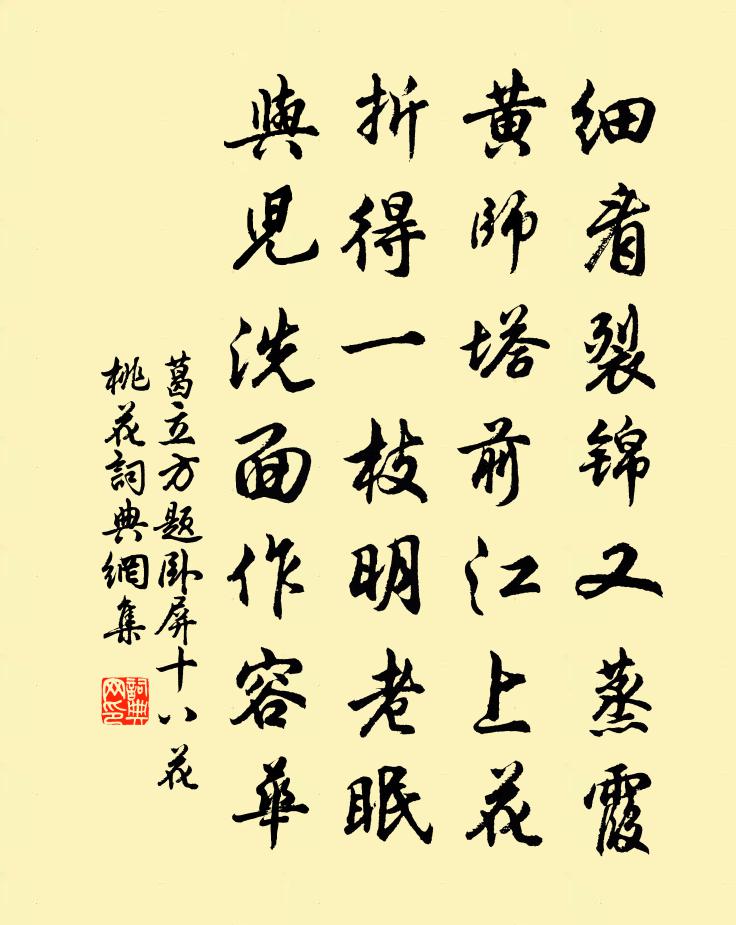 细看裂锦又蒸霞
黄師塔前江上花
折得一枝明老眼
與児洗面作容華
葛立方题卧屏十八花
桃花詞典網集
詞典网印